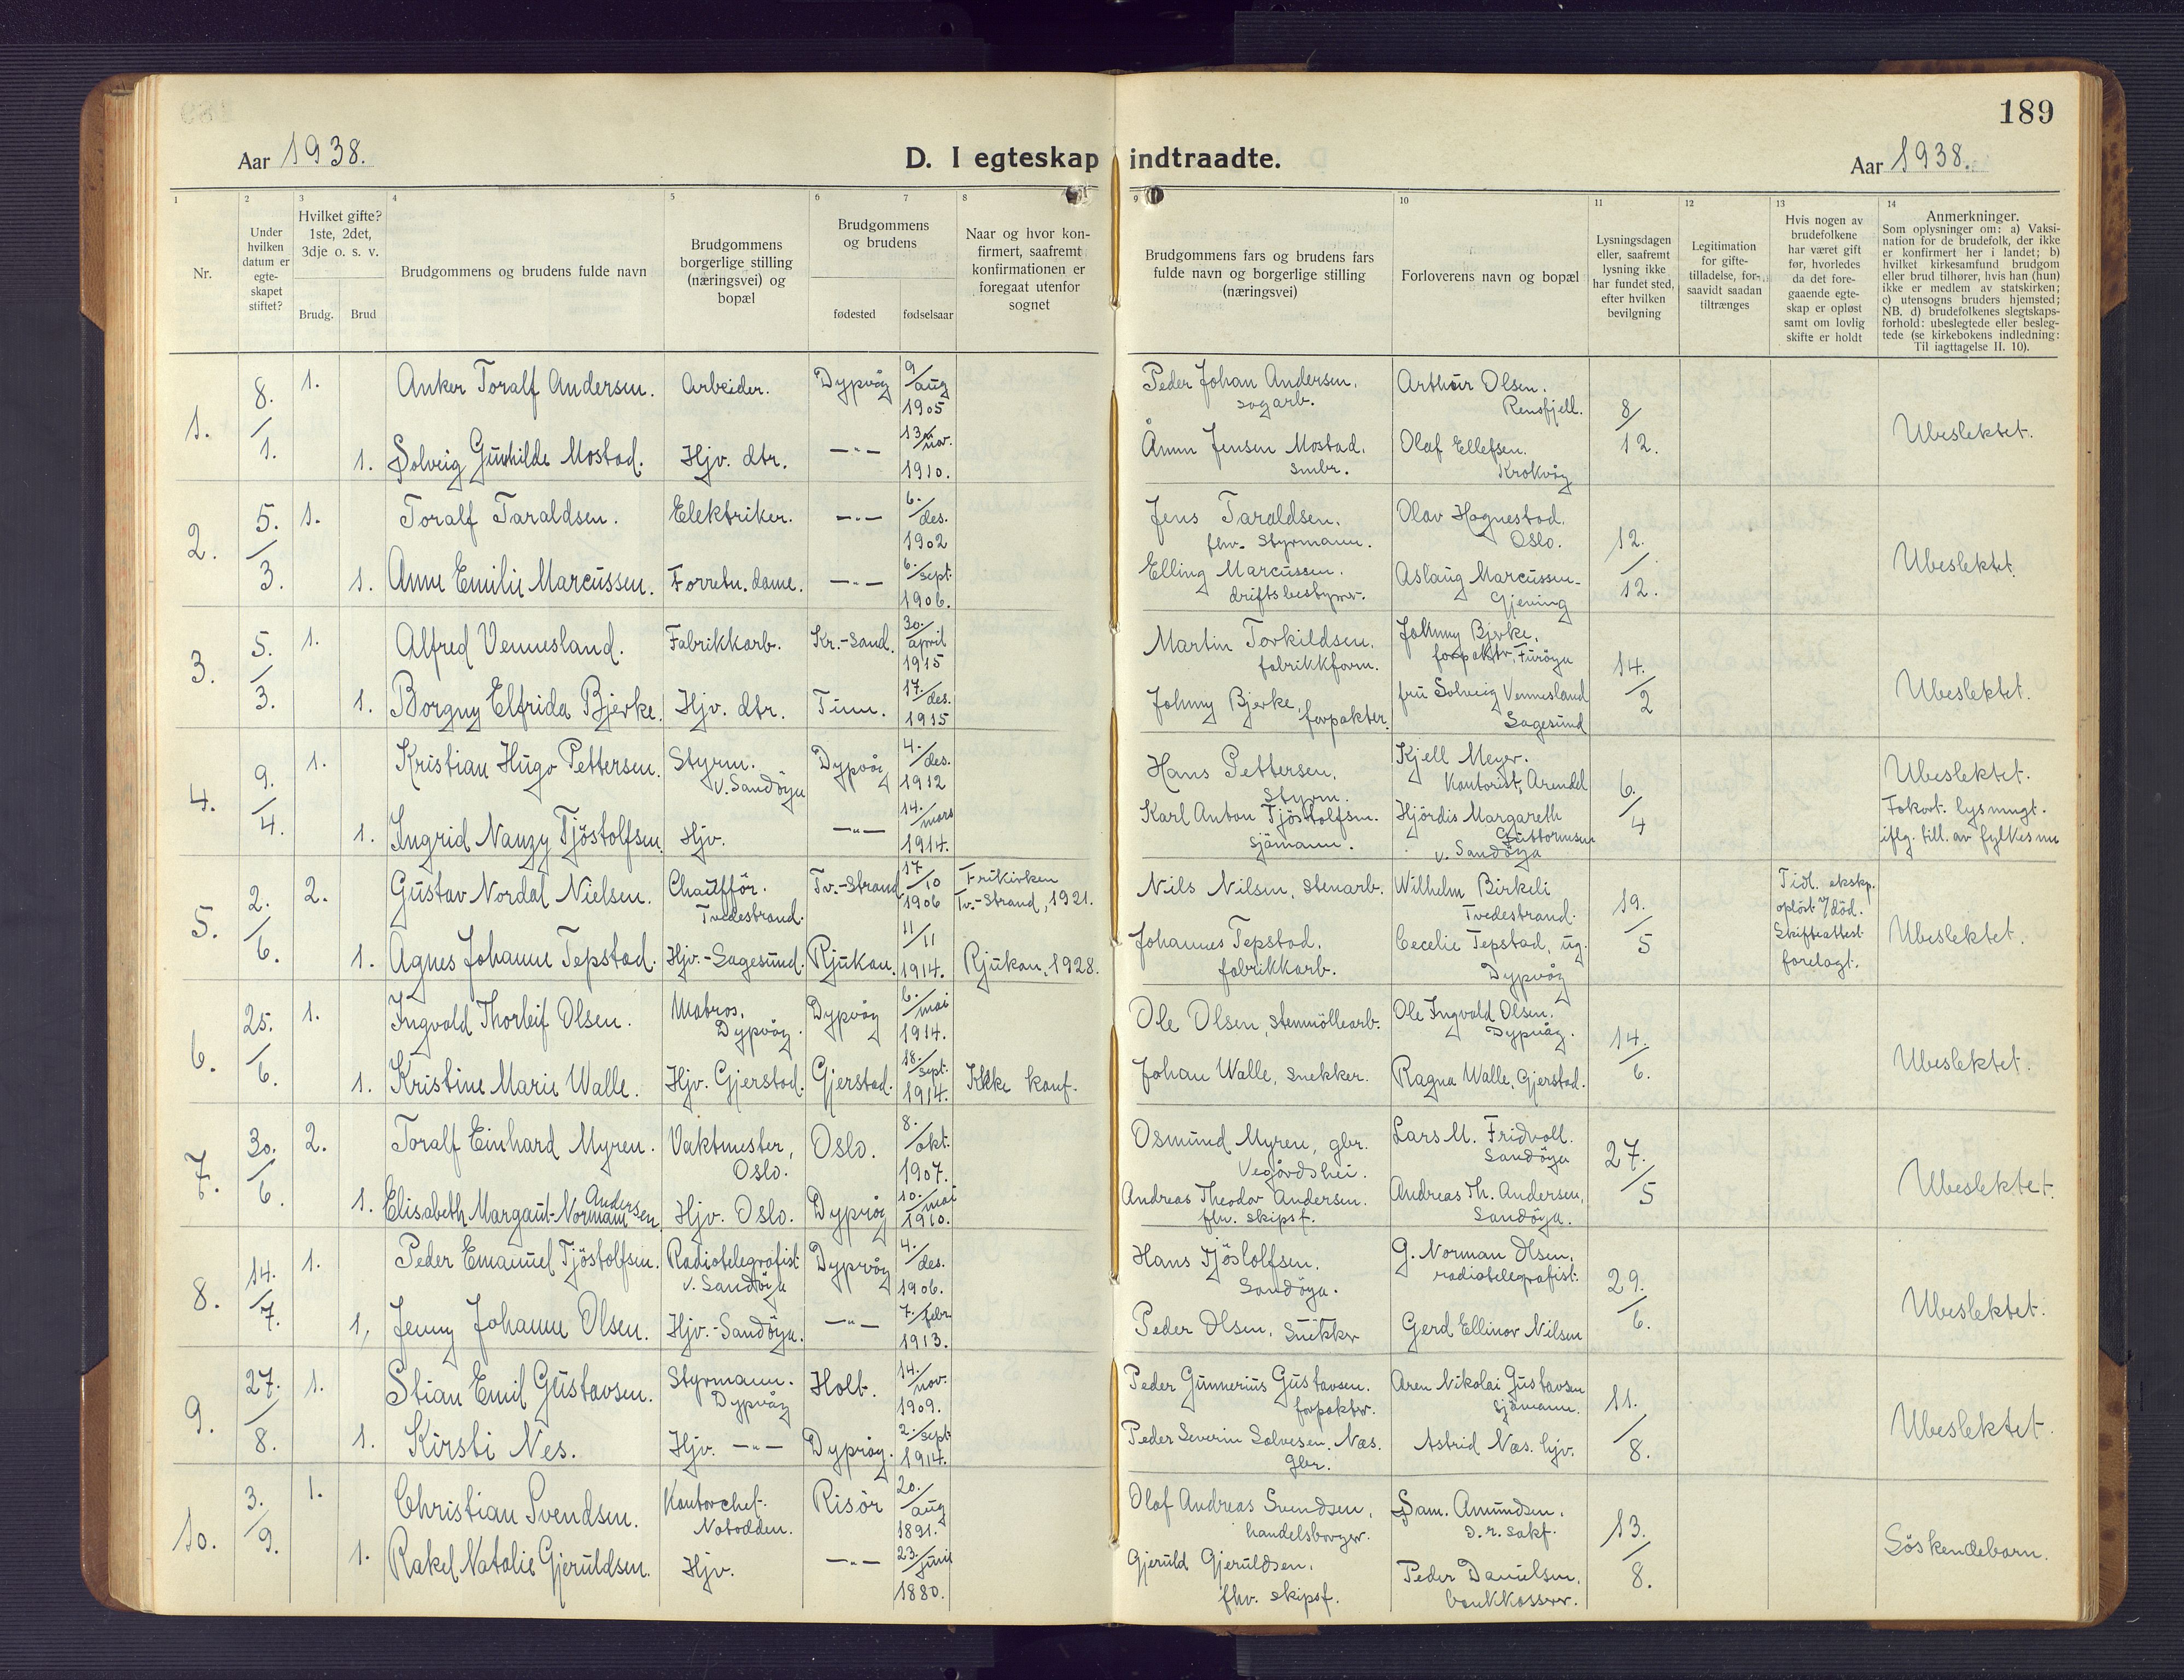 189
Aar 1938.
D. I egteskap indtraadte.
Aar 1938.
1
2
3
4
5
6
7
8
9
10
11
12
13
14
Nr.
Under hvilken datum er egte- skapet stiftet?
Hvilket gifte? 1ste, 2det, 3dje o. s. v.
Brudg.
Brud
Brudgommens og brudens fulde navn
Brudgommens borgerlige stilling (næringsvei) og bopæl
Brudgommens og brudens
fødested
fødselsaar
Naar og hvor kon- firmert, saafremt konfirmationen er foregaat utenfor sognet
Brudgommens fars og brudens fars fulde navn og borgerlige stilling (næringsvei)
Forloverens navn og bopæl
Lysningsdagen eller, saafremt lysning ikke har fundet sted, efter hvilken bevilgning
Legitimation for gifte- tilladelse, for- saavidt saadan tiltrænges
Hvis nogen av brudefolkene har været gift før, hvorledes da det fore- gaaende egte- skap er opløst samt om lovlig skifte er holdt
Anmerkninger.
Som oplysninger om: a) Vaksi- nation for de brudefolk, der ikke er konfirmert her i landet; b) hvilket kirkesamfund brudgom eller brud tilhører, hvis han (hun) ikke er medlem av statskirken; c) utensogns bruders hjemsted; NB. d) brudefolkenes slegtskaps- forhold: ubeslegtede eller besleg- tede (se kirkebokens indledning: Til iagttagelse II. 10).
1. 8./1. 1. Anker Toralf Andersen. Arbeider. Dypvåg 9/aug 1905 Peder Johan Andersen, sagarb. Arthur Olsen. Rensfjell. 8/12. Ubeslektet.
1. Solveig Gunhilde Mostad. Hjv. dtr. —"— 13/nov. 1910. Ånun Jensen Mostad, smbr. Olaf Ellefsen. Krokvåg
2. 5./3. 1. Toralf Taraldsen. Elektriker. —"— 6./des. 1902 Jens Taraldsen. fhv. styrmann. Olav Hagnestad. Oslo. 12./12. Ubeslektet.
1. Anne Emilie Marcussen. Forretn. dame. —"— 6./sept. 1906. Elling Marcussen. driftsbestyrer. Aslaug Marcussen. Gjeving
3. 5./3. 1. Alfred Vennesland. Fabrikkarb. Kr.-sand. 30./april 1915 Martin Torkildsen. fabrikkform. Johnny Bjerke, forpakter, Furøya 14./2 Ubeslektet.
1. Borgny Elfrida Bjerke. Hjv. dtr. Tinn. 17./des. 1915 Johnny Bjerke, forpakter. fru Solveig Vennesland Sagesund
4. 9./4. 1. Kristian Hugo Pettersen. Styrm. v. Sandöya Dypvåg 4./des. 1912 Hans Pettersen. Styrm. Kjell Meyer. Kontorist, Arendal 6./4 Ubeslektet.
1. Ingrid Nanzy Tjöstolfsen. Hjv. —"— 14./mars 1914. Karl Anton Tjöstolfsen. sjömann. Hjördis Margareth Guttormsen v. Sandöya lysningst. iflg. till. av fylkesm
5. 2./6. 2. Gustav Nordal Nielsen. Chaufför. Tvedestrand. Tv.-strand 17/10 1906 Frikirken Tv.-strand, 1921. Nils Nilsen, stenarb. Wilhelm Birkeli Tvedestrand. 19./5 Tidl. ekskp. oplöst v/död. Skifteattest forelagt. Ubeslektet.
1. Agnes Johanne Tepstad. Hjv.-Sagesund. Rjukan. 11/11 1914. Rjukan, 1928. Johannes Tepstad. fabrikkarb. Cecelie Tepstad, ug. Dypvåg
6. 25./6. 1. Ingvald Thorleif Olsen. Matros. Dypvåg. Dypvåg 6./mai 1914. Ole Olsen, stenmöllearb. Ole Ingvald Olsen. Dypvåg. 14./6. Ubeslektet.
1. Kristine Marie Walle. Hjv. Gjerstad. Gjerstad. 18./sept. 1914. Ikke konf. Johan Walle, snekker. Ragna Walle, Gjerstad.
7. 30./6. 2. Toralf Einhard Myren. Vaktmester, Oslo. Oslo. 8./okt. 1907. Osmund Myren, gbr. Vegårdshei. Lars M. Fridvoll. Sandöya 27./5 Ubeslektet.
1. Elisabeth Margaut-Normann Andersen. Hjv. Oslo. Dypvåg 10./mai 1910. Andreas Theodor Andersen. fhv. skipsf. Andreas Th. Andersen, Sandöya.
8. 14./7. 1. Peder Emanuel Tjöstolfsen. Radiotelegrafist v. Sandöya Dypvåg 4./des. 1906. Hans Tjöstolfsen. Sandöya. G. Norman Olsen. radiotelegrafist. 29./6. Ubeslektet.
1, Jenny Johanne Olsen. Hjv.-Sandöya. —"— 7./febr 1913. Peder Olsen, Snekker Gerd Ellinor Nilsen
9. 27./8. 1. Stian Emil Gustavsen. Styrmann. Dypvåg Holt. 14./nov. 1909. Peder Gunnerius Gustavsen. forpakter. Aren Nikolai Gustavsen sjömann. 11./8. Ubeslektet.
1. Kirsti Nes. Hjv. —"— Dypvåg. 2./sept. 1914. Peder Severin Salvesen Næs. gbr. Astrid Næs. hjv.
10. 3./9. 1. Christian Svendsen. Kontorchef. Notodden. Risör 20./aug 1891. Olaf Andreas Svendsen, handelsborger. Sam. Amundsen. o. r. sakf. 13./8. Söskendebarn.
1. Rakel Natalie Gjeruldsen. Hjv. —"— 23./juni 1880. Gjeruld Gjeruldsen. fhv. skipsf. Peder Danielsen. bankkasserer.